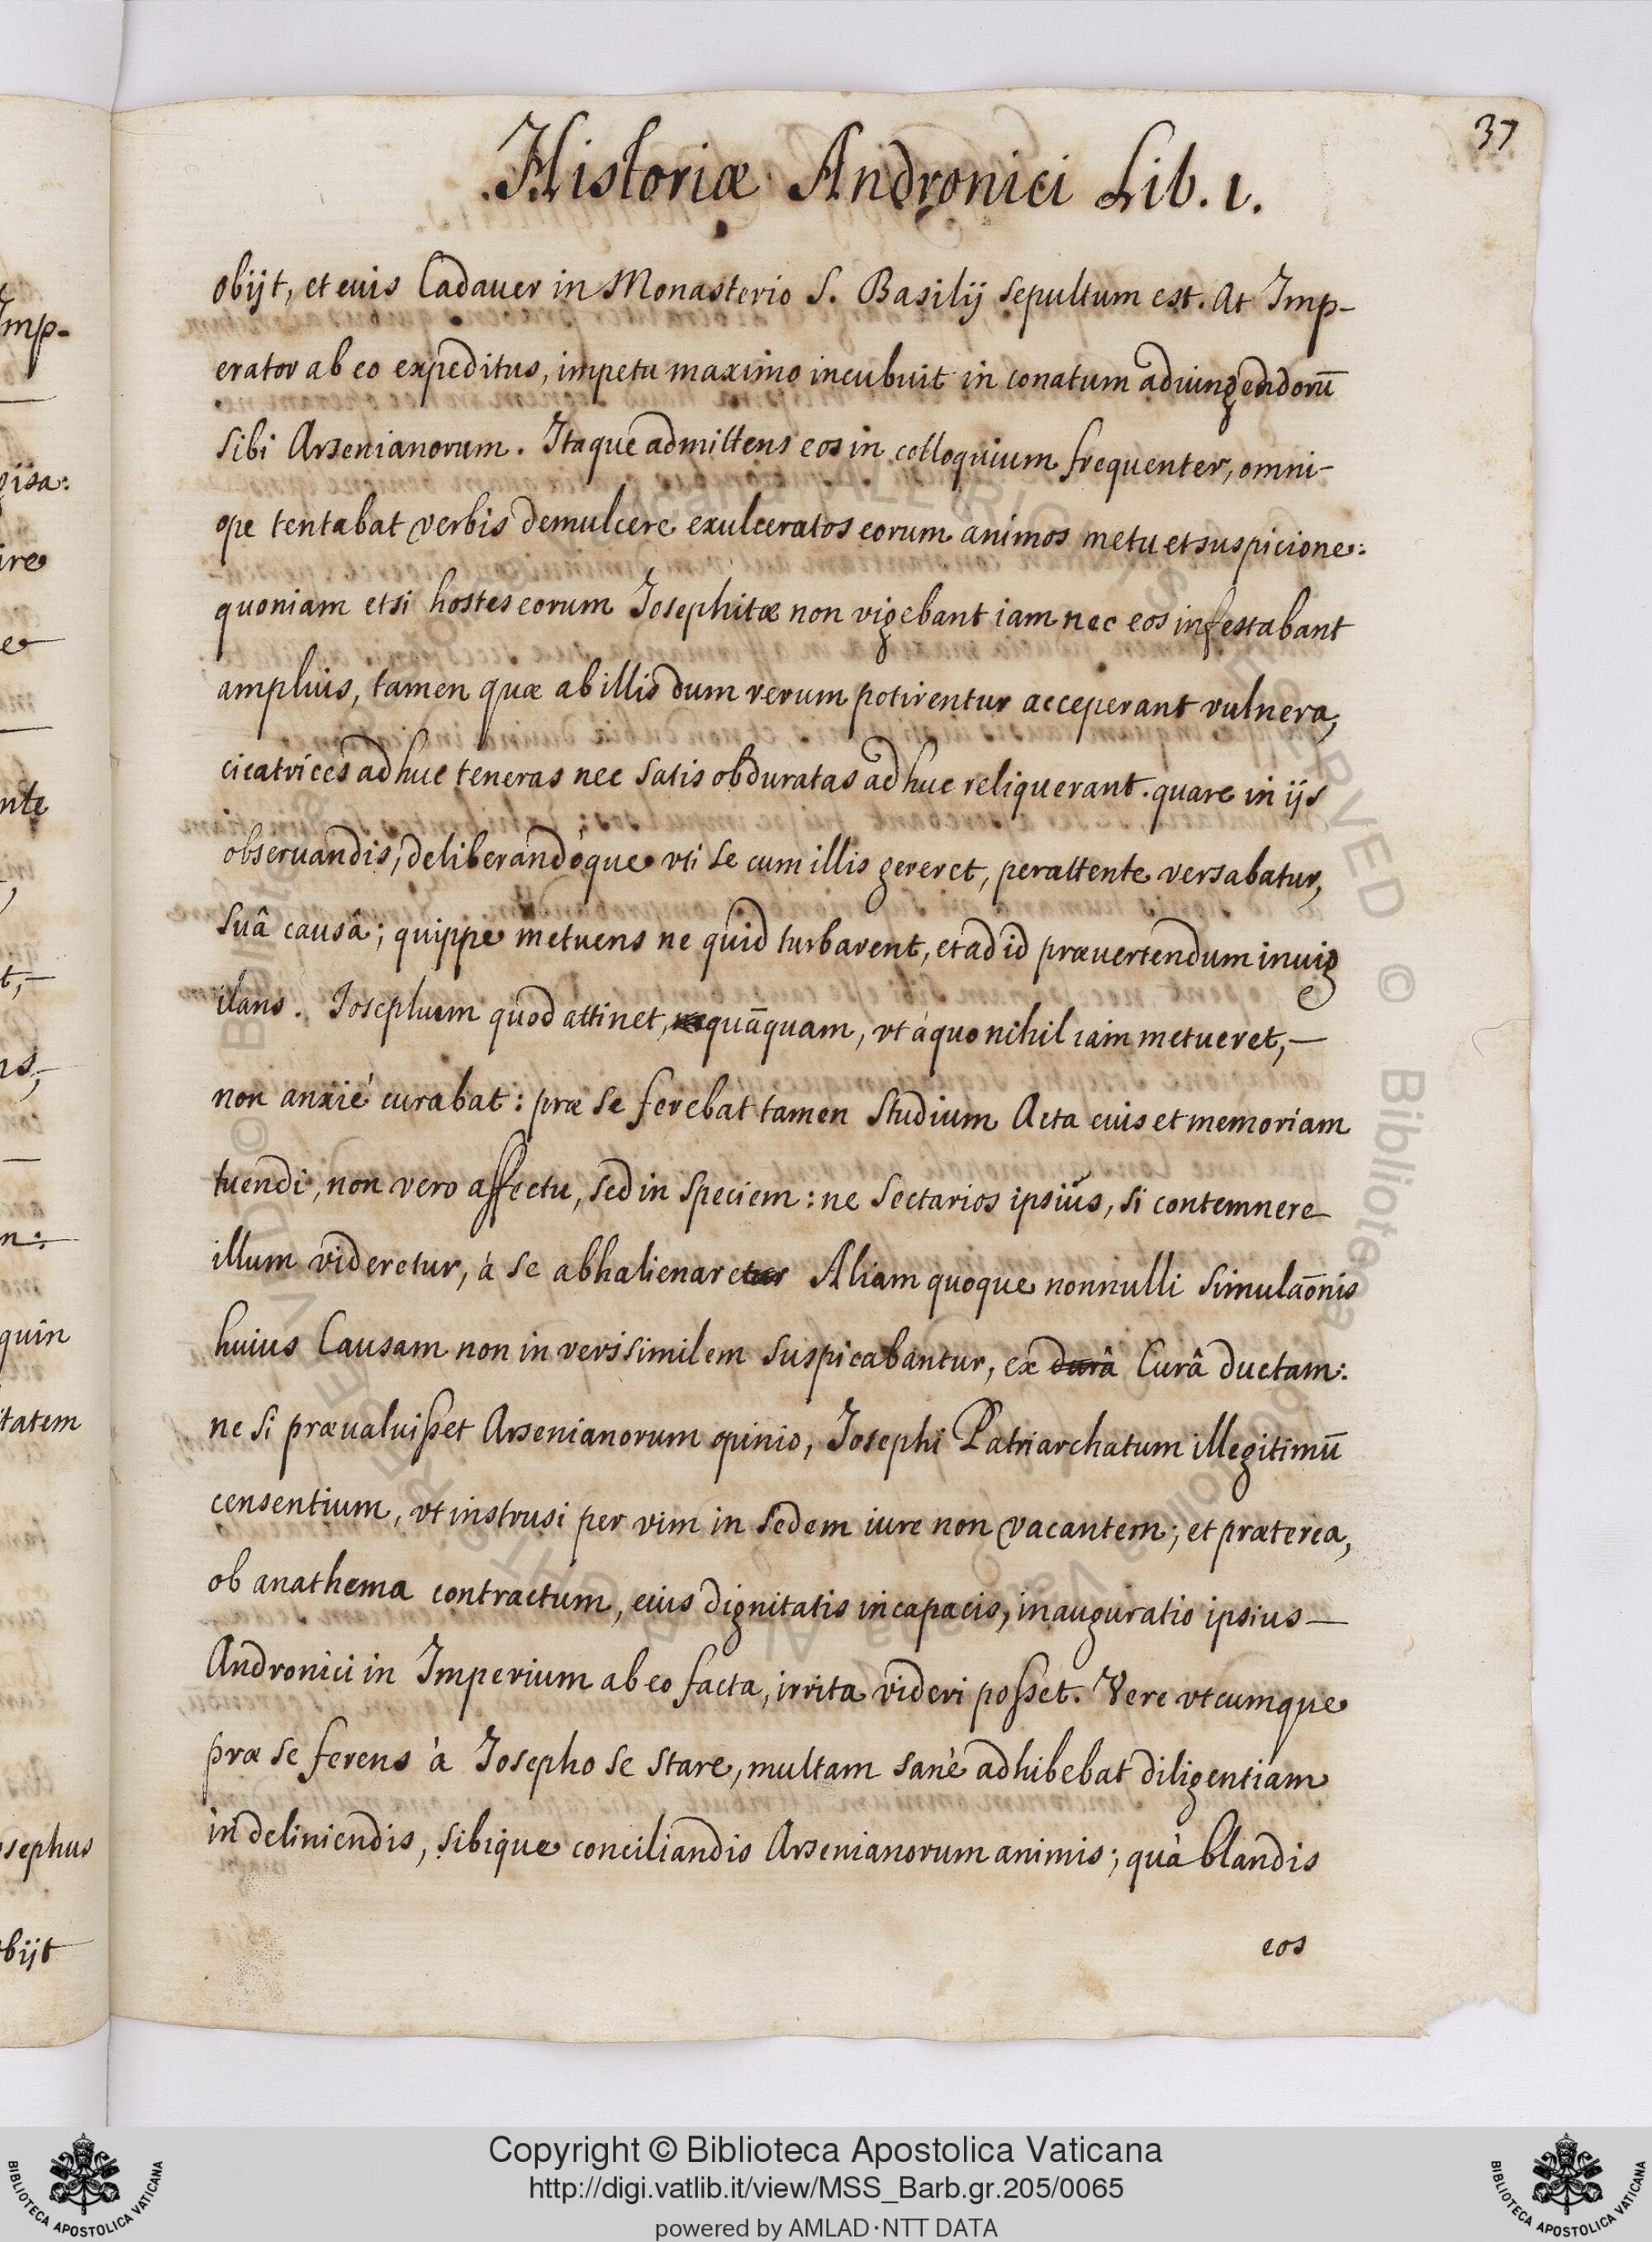 37
Historiæ Andronici Lib. 1.
obijt, et euis Cadauer in Monasterio S. Basilij sepultum est. At Imp-
erator ab eo expeditus, impetu maximo incubuit in conatum adiungendorū
sibi Arsenianorum. Itaque admittens eos in colloquium frequenter, omni-
ope tentabat verbis demulcere exulceratos eorum animos metu et suspicione:
quoniam etsi hostes eorum Josephitæ non vigebant iam nec eos infestabant
amplius, tamen quæ ab illis dum rerum potirentur acceperant vulnera,
cicatrices adhuc teneras nec satis obduratas adhuc reliquerant. quare in ijs
obseruandis, deliberandóque vti se cum illis gereret, perattente versabatur,
suâ causâ; quippe metuens ne quid turbarent, et ad id præuertendum inuig
ilans. Josephum quod attinet, quāquam, vt à quo nihil iam metueret,—
non anxié curabat: præ se ferebat tamen studium Acta euis et memoriam
tuendi, non vero affectu, sed in speciem: ne sectarios ipsius, si contemnere
illum videretur, à se abhalienaret Aliam quoque nonnulli simulaōnis
huius Causam non in verissimilem suspicabantur, ex durâ Curâ ductam:
ne si præualuisset Arsenianorum opinio, Josephi Patriarchatum illegitimū
censentium, vt instrusi per vim in sedem iure non vacantem; et præterea,
ob anathema contractum, euis dignitatis incapacis, inauguratio ipsius—
Andronici in Imperium ab eo facta, irrita videri posset. Vere vtcumque
præ se ferens à Josepho se stare, multam sanè adhibebat diligentiam
in deliniendis, sibique conciliandis Arsenianorum animis; quà blandis
eos
Imp-
ire
nte
quin
itatem
osephus
obijt
Copyright © Biblioteca Apostolica Vaticana
http://digi.vatlib.it/view/MSS_Barb.gr.205/0065
powered by AMLAD·NTT DATA
BIBLIOTECA APOSTOLICA VATICANA
BIBLIOTECA APOSTOLICA VATICANA